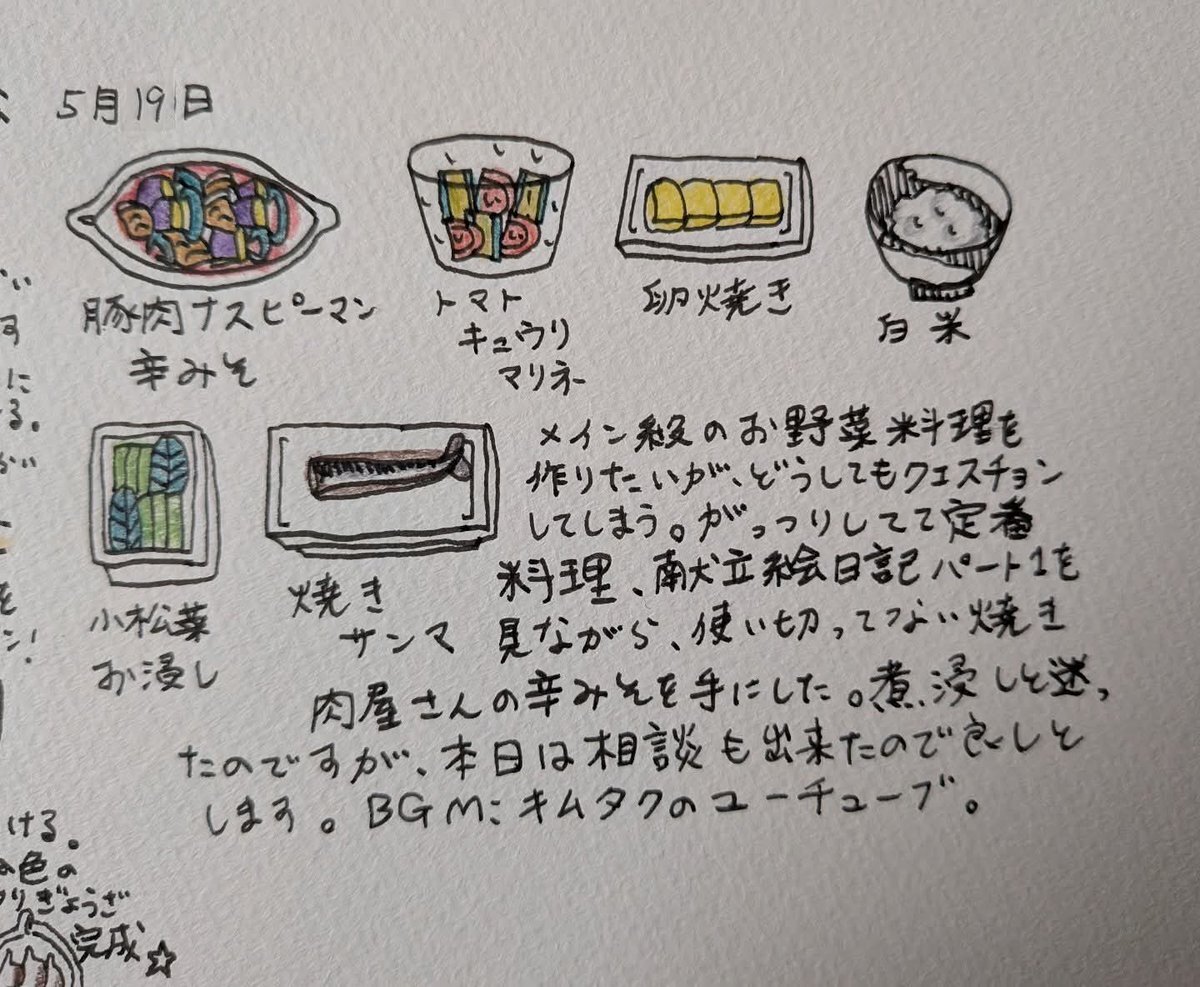 5月19日
豚肉ナスピーマン
辛みそ
トマト
キュウリ
マリネ
卵焼き
白米
小松菜
お浸し
焼き
サンマ
メイン級のお野菜料理を
作りたいが、どうしてもクエスチョン
してしまう。がっつりしてて定番
料理、献立絵日記パート1を
見ながら、使い切ってない焼き
肉屋さんの辛みそを手にした。煮浸しと迷っ
たのですが、本日は相談も出来たので良しと
します。BGM:キムタクのユーチューブ。
ける。
色の
ぎょうざ
完成☆